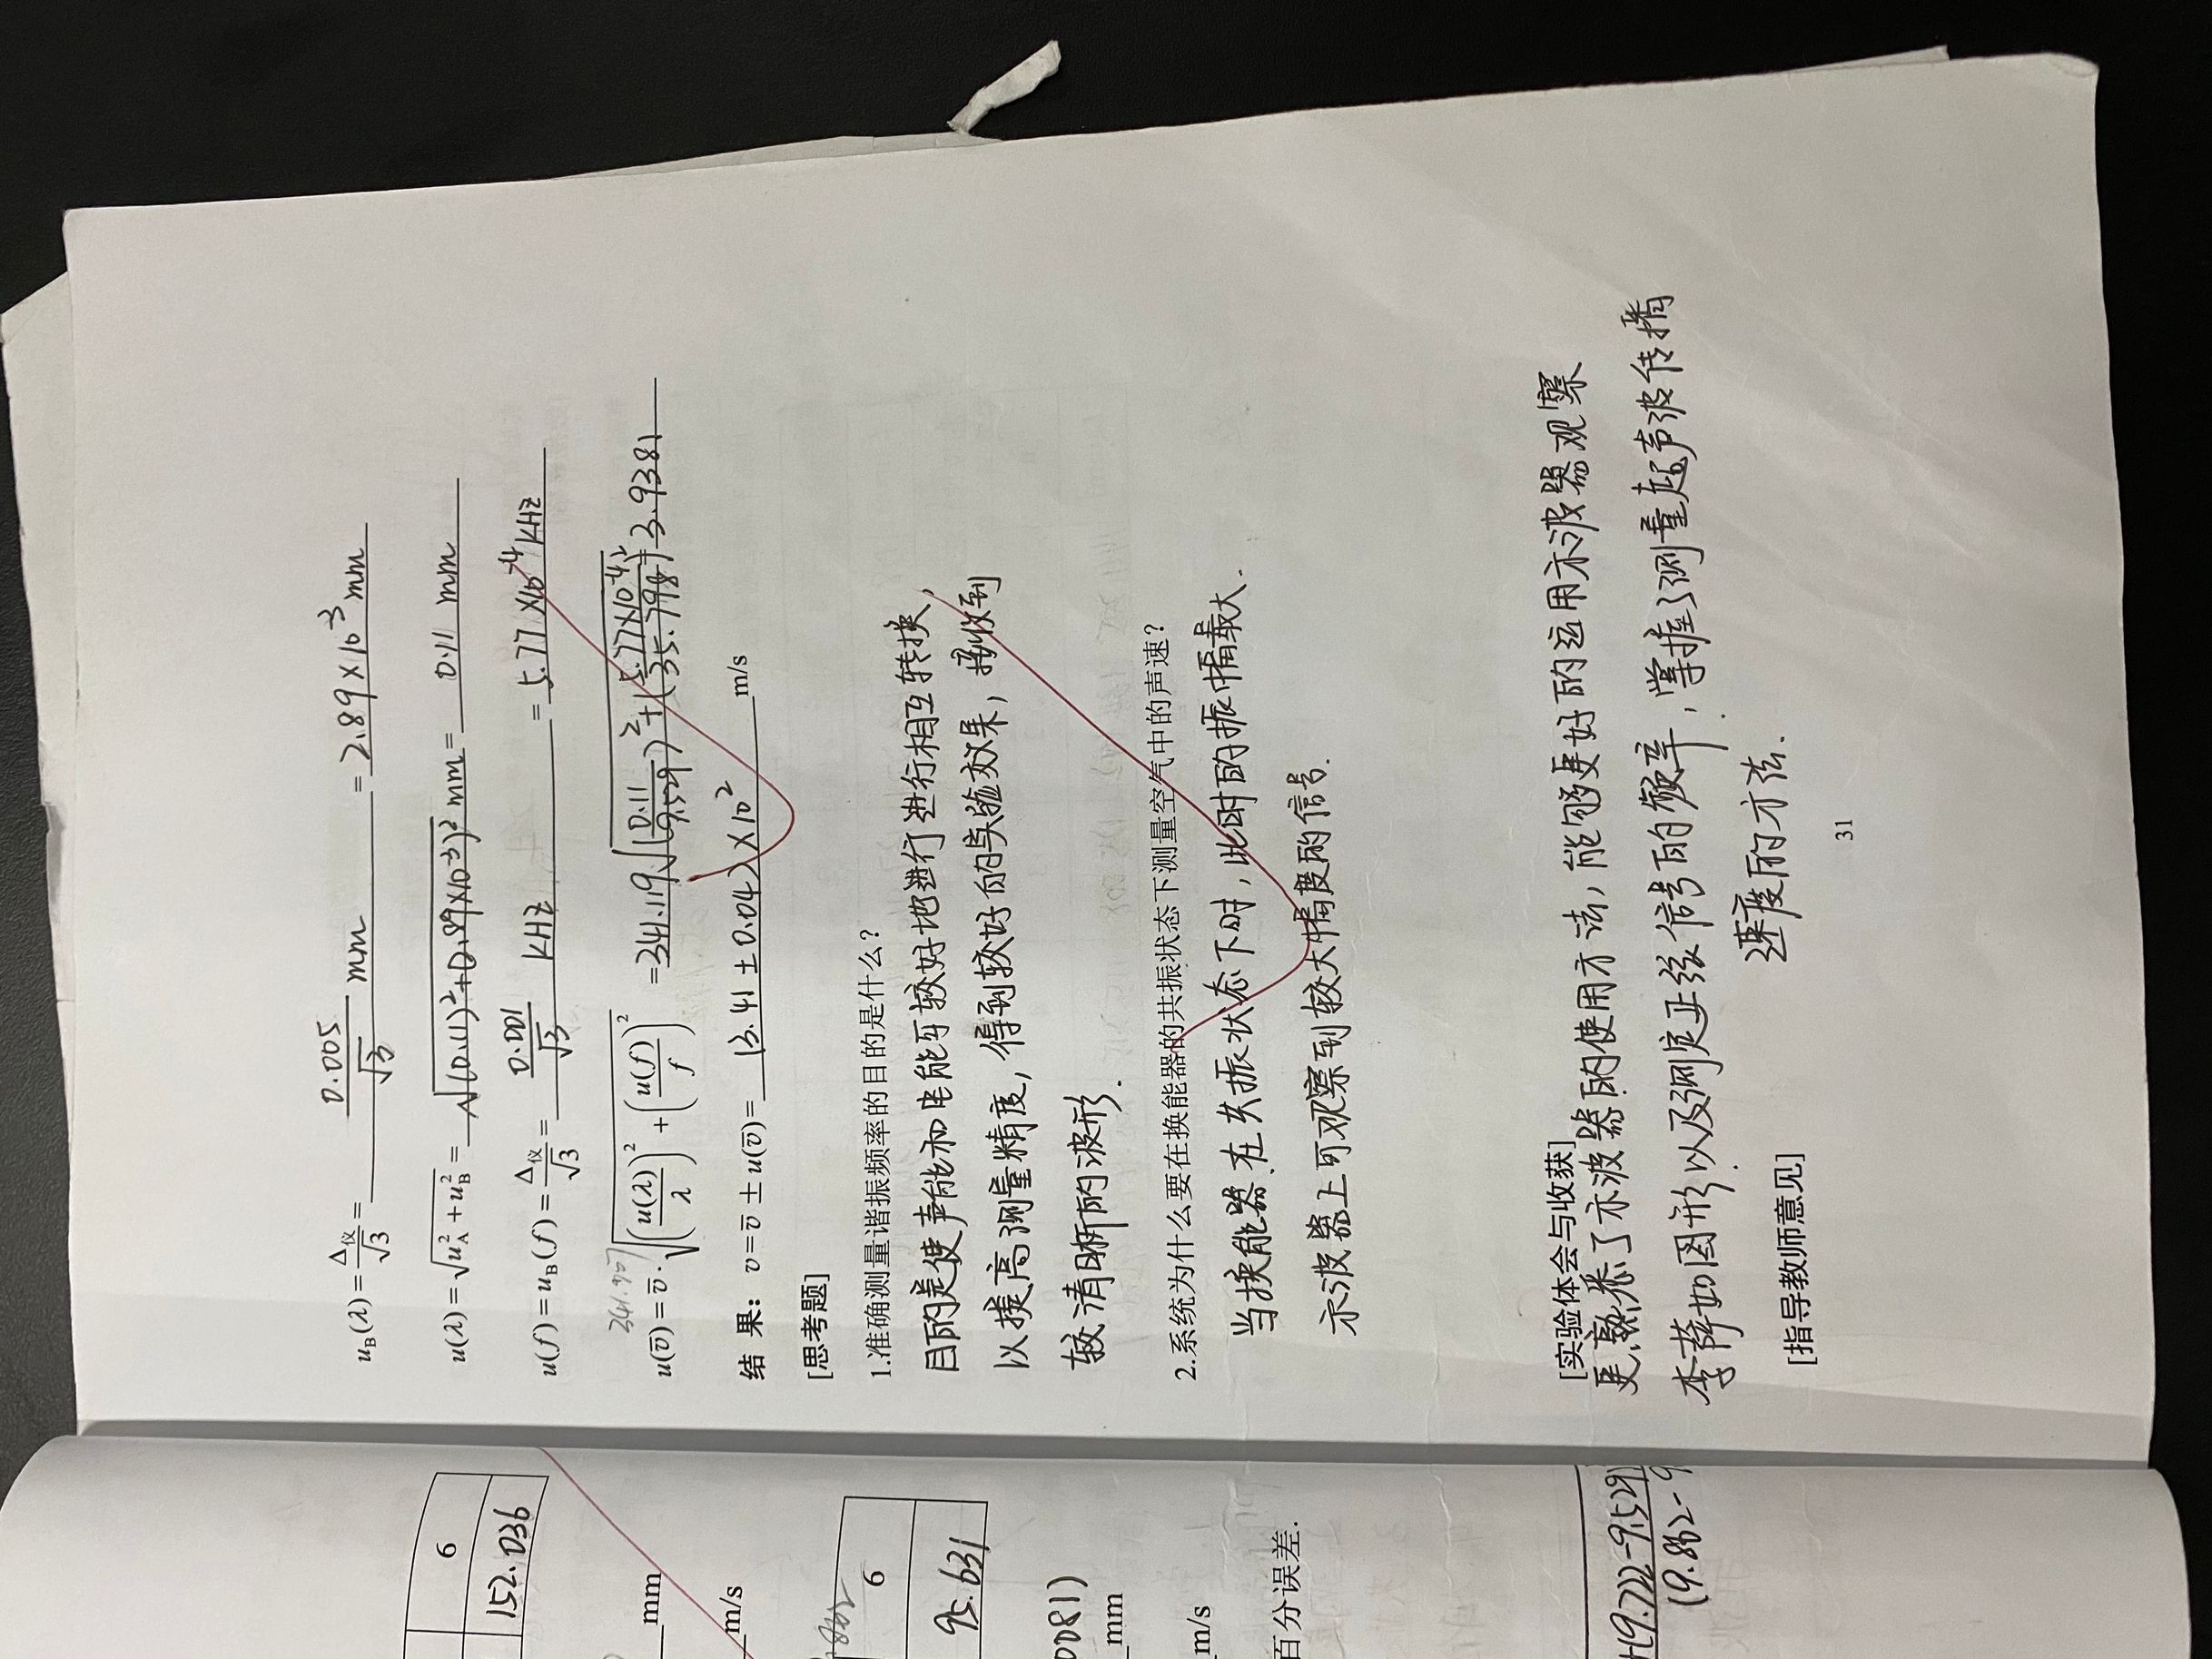 6
152.036
mm
m/s
6
95.631
0081)
mm
m/s
百分误差.
+(9.722-9.529)
(9.862-9
u_B(λ)=Δ仪/√3=0.005/√3 mm=2.89×10⁻³mm
u(λ)=√(u_A²+u_B²)=√((0.11)²+(2.89×10⁻³)²) mm=0.11 mm
u(f)=u_B(f)=Δ仪/√3=0.001/√3 KHZ=5.77×10⁻⁴KHZ
u(v̄)=v̄·√((u(λ)/λ)²+(u(f)/f)²)=341.119√((0.11/9.529)²+(5.77×10⁻⁴/35.798)²) 3.9381
结 果：v=v̄±u(v̄)=(3.41±0.04)×10² m/s
[思考题]
1.准确测量谐振频率的目的是什么？
目的是使声能和电能可较好地进行进行相互转换，
以提高测量精度，得到较好的实验效果，接收到
较清晰的波形.
2.系统为什么要在换能器的共振状态下测量空气中的声速？
当换能器在共振状态下时，此时的振幅最大.
示波器上可观察到较大幅度的信号.
[实验体会与收获]
更熟悉了示波器的使用方法，能够更好的运用示波器观察
李萨如图形以及测定正弦信号的频率，掌握了测量超声波传播
速度的方法.
[指导教师意见]
31